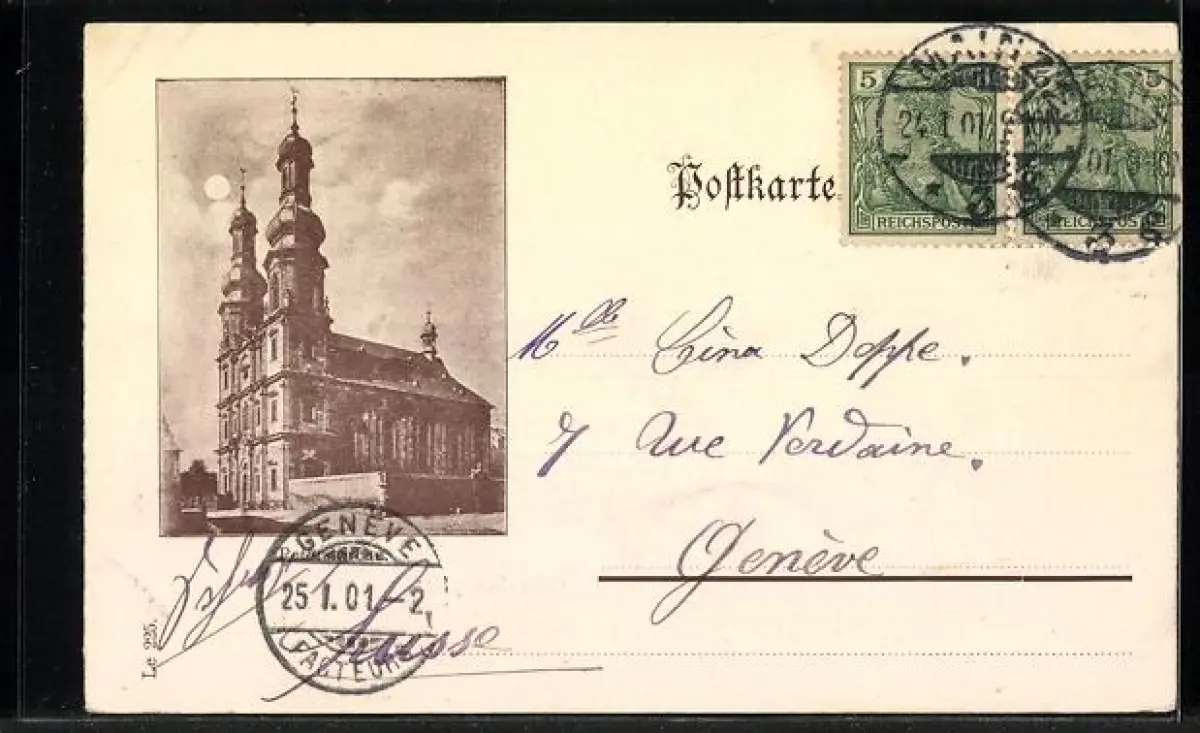 Postkarte
5 5 5
REICHSPOST REICHSPOST
MAINZ
24 1 01
Mlle Lina Doppe.
7 Rue Verdaine.
Genève
Suisse
GENÈVE
25 I. 01 - 2
FACTEURS
Le 225.